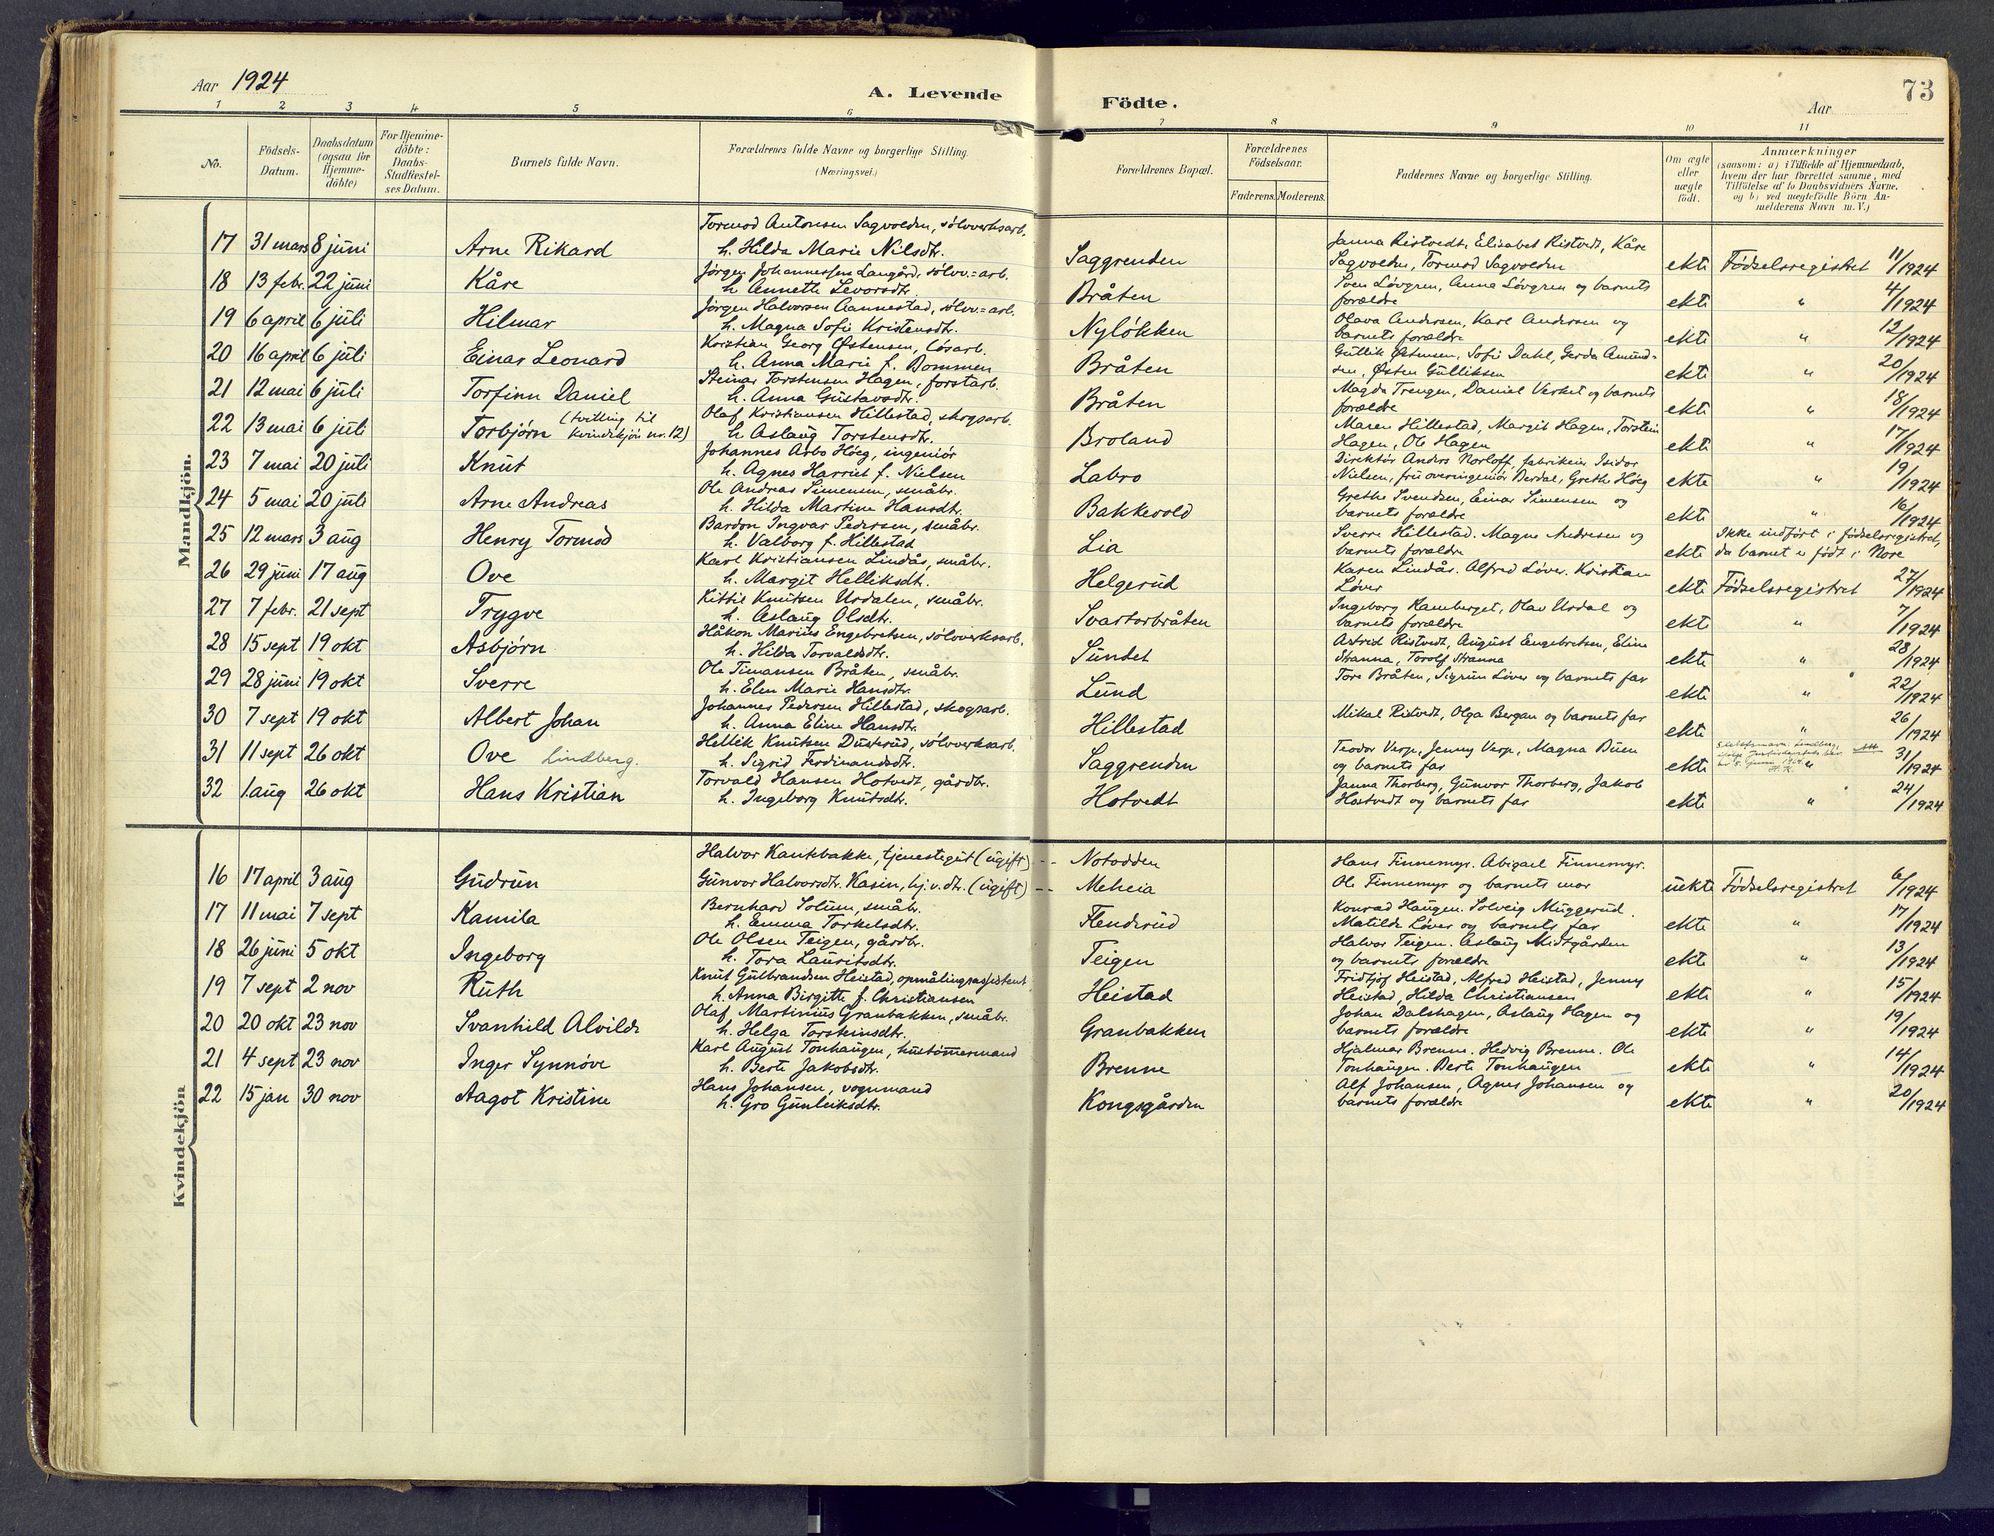 Aar 1924
A. Levende Födte.
Aar
73
1 2 3 4 5 6 7 8 9 10 11
No.
Födsels-Datum.
Daabsdatum (ogsaa for Hjemmedöbte)
For Hjemmedöbte: Daabs-Stadfæstelses Datum.
Barnets fulde Navn.
Forældrenes fulde Navne og borgerlige Stilling. (Næringsvei.)
Forældrenes Bopæl.
Forældrenes Födselsaar.
Faderens. Moderens.
Faddernes Navne og borgerlige Stilling.
Om ægte eller uægte födt.
Anmærkninger
(saasom: a) i Tilfælde af Hjemmedaab, hvem der har forrettet samme, med Tilföielse af to Daabsvidners Navne. og b) ved uægtefödte Börn Anmelderens Navn m. V.)
Mandkjön.
17 31 mars 8 juni Arne Rikard Tormod Antonsen Sagvolden, sölvverksarb. h. Hilda Marie Nilsdtr. Saggrenden Janna Ristvedt, Elisabet Ristvedt, Kåre Sagvolden, Tormod Sagvolden ekte Fødselsregistret 11/1924
18 13 febr. 22 juni Kåre Jørgen Johannessen Langård, sølvv.=arb. h. Annette Levorsdtr. Bråten Sven Løvgren, Anna Løvgren og barnets forældre ekte " 4/1924
19 6 april 6 juli Hilmar Jørgen Halvorsen Aannestad, sølvv.=arb. h. Magna Sofie Kristensdtr. Nyløkken Olava Andersen, Karl Andersen og barnets forældre ekte " 12/1924
20 16 april 6 juli Einar Leonard Kristian Georg Østensen, løsarb. h. Anna Marie f. Bommen Bråten Gullik Østensen, Sofie Dahl, Gerda Amundsen, Østen Gulliksen ekte " 20/1924
21 12 mai 6 juli Torfinn Daniel Steinar Torstensen Hagen, forstarb. h. Anna Gustavsdtr. Bråten Magda Trengen, Daniel Verket og barnets forældre ekte " 18/1924
22 13 mai 6 juli Torbjørn (tvilling til kvindekjön nr. 12) Olaf Kristiansen Hillestad, skogsarb. h. Aslaug Torstensdtr. Broland Maren Hillestad, Margit Hagen, Torstein Hagen, Ole Hagen ekte " 17/1924
23 7 mai 20 juli Knut Johannes Arbo Höeg, ingeniør h. Agnes Harriet f. Nielsen Labro Direktør Anders Norloff, fabrikeier Isidor Nielsen, fru overingeniør Berdal, Grethe Höeg ekte " 19/1924
24 5 mai 20 juli Arne Andreas Ole Andreas Simensen, småbr. h. Hilda Martine Hansdtr. Bakkevold Grethe Svendsen, Einar Simensen og barnets forældre ekte " 16/1924
25 12 mars 3 aug Henry Tormod Bardon Ingvar Pedersen, småbr. h. Valborg f. Hillestad Lia Sverre Hillestad. Magne Andresen og barnets forældre ekte Ikke indført i fødselsregistret, da barnet er født i Nore
26 29 juni 17 aug Ove Karl Kristiansen Lindås, småbr. h. Margit Helliksdt. Helgerud Karen Lindås. Alfred Løver. Kristian Løver ekte Fødselsregistret 27/1924
27 7 febr. 21 sept Trygve Kittil Knutsen Urdalen, småbr. h. Aslaug Olsdtr. Svartorbråten Ingeborg Kamberget, Olav Urdal og barnets forældre ekte " 7/1924
28 15 sept 19 okt Asbjørn Håkon Marius Engebretsen, sølvverksarb. h. Hilda Torvaldsdtr. Sundet Astrid Ristvedt, August Engebretsen, Eline Stranna, Torolf Stranna ekte " 28/1924
29 28 juni 19 okt Sverre Ole Timansen Bråten, småbr. h. Elen Marie Hansdtr. Lund Tore Bråten, Sigrun Løver og barnets far ekte " 22/1924
30 7 sept 19 okt Albert Johan Johannes Pedersen Hillestad, skogsarb. h. Anna Eline Hansdtr. Hillestad Mikal Ristvedt, Olga Bergan og barnets far ekte " 26/1924
31 11 sept 26 okt Ove Lindberg. Hellik Knutsen Dusterud, sølvverksarb. h. Sigrid Ferdinandsdtr. Saggrenden Teodor Verp, Jenny Verp, Magna Buen og barnets far ekte Slektsnavn: Lindberg, " 31/1924
32 1. aug 26 okt Hans Kristian Torvald Hansen Hotvedt, gårdbr. h. Ingeborg Knutsdtr. Hotvedt Janna Thorberg, Gunvor Thorberg, Jakob Hostvedt og barnets far ekte " 24/1924
Kvindekjön
16 17 april 3 aug Gudrun Halvor Kankbakke, tjenestegut (ugift) -- Notodden Gunvor Halvorsdtr. Kasin, hj.v. dtr. (ugift) -- Meheia Hans Finnemyr. Abigael Finnemyr. Ole Finnemyr og barnets mor uekte Fødselsregistret 6/1924
17 11 mai 7 sept Kamila Bernhard Solum, småbr. h. Emma Torkelsdtr. Flenderud Konrad Haugen. Solveig Muggerud. Matilde Løver og barnets far ekte " 17/1924
18 26 juni 5 okt Ingeborg Ole Olsen Teigen, gårdbr. h. Tora Lauritsdtr. Teigen Halvor Teigen. Aslaug Midtgården og barnets forældre ekte " 13/1924
19 7 sept 2 nov Ruth Knut Gulbrandsen Heistad, opmålingsassistent, h. Anna Birgitte f. Christiansen Heistad Fridtjof Heistad, Alfred Heistad, Jenny Heistad, Hilda Christiansen ekte " 15/1924
20 20 okt 23 nov Svanhild Alvilde Olaf Martinius Granbakken, småbr. h. Helga Torsteinsdtr. Granbakken Johan Dalshagen, Aslaug Hagen og barnets forældre ekte " 19/1924
21 4 sept 23 nov Inger Synnøve Karl August Tonhaugen, hustømmermand h. Berte Jakobsdtr. Brenne Hjalmar Brenne. Hedvig Brenne. Ole Tonhaugen. Berte Tonhaugen ekte " 14/1924
22 15 jan 30 nov Aagot Kristine Hans Johansen, vognmand h. Gro Gunleiksdtr. Kongsgården Alf Johansen, Agnes Johansen og barnets forældre ekte " 20/1924